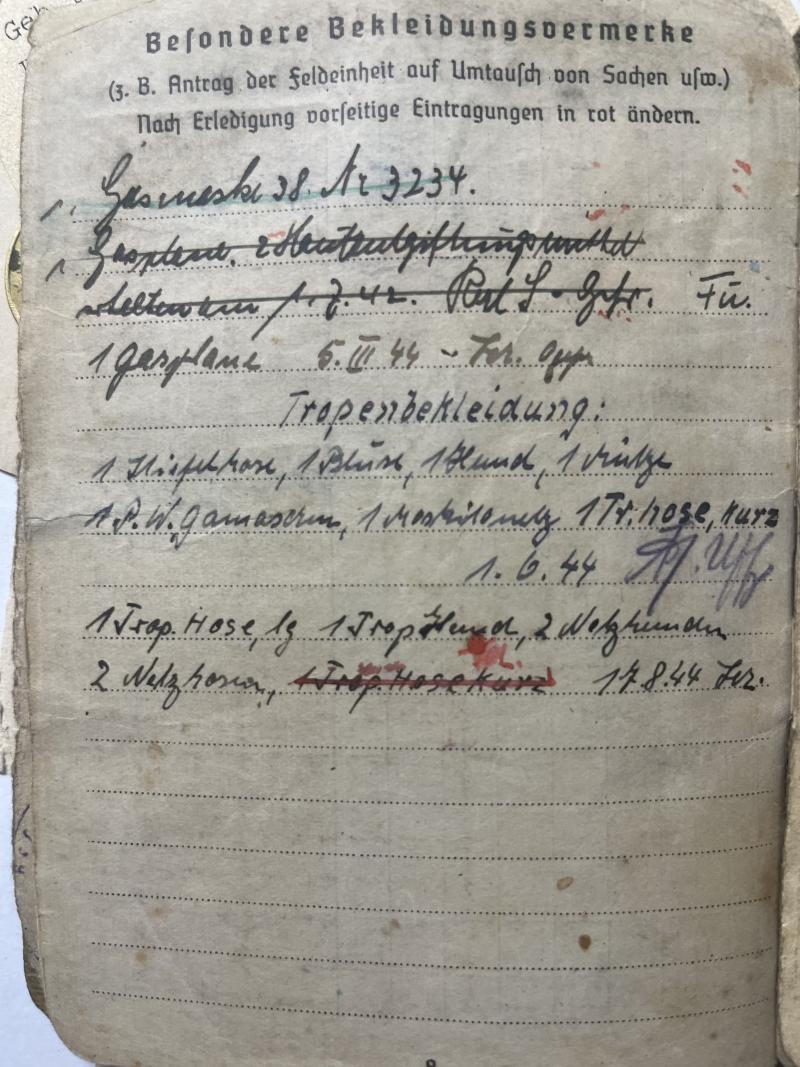 Besondere Bekleidungsvermerke
(z. B. Antrag der Feldeinheit auf Umtausch von Sachen usw.)
Nach Erledigung vorseitige Eintragungen in rot ändern.
1. Gasmaske 38. Nr 3234.
1 Gasplane. 2 Hautentgiftungsmittel
1.7.42. Gefr. Fu.
1 Gasplane 5. III 44 -
Tropenbekleidung:
1 Stiefelhose, 1 Bluse, 1 Hemd, 1 Mütze
1 P. W. Gamaschen, 1 Moskitonetz 1 Tr. hose, kurz
1. 6. 44 Uffz
1 Trop. Hose, lg 1 Trop Hemd, 2 Netzhemden
2 Netzhosen, 1 Trop. Hose kurz 17.8.44
8